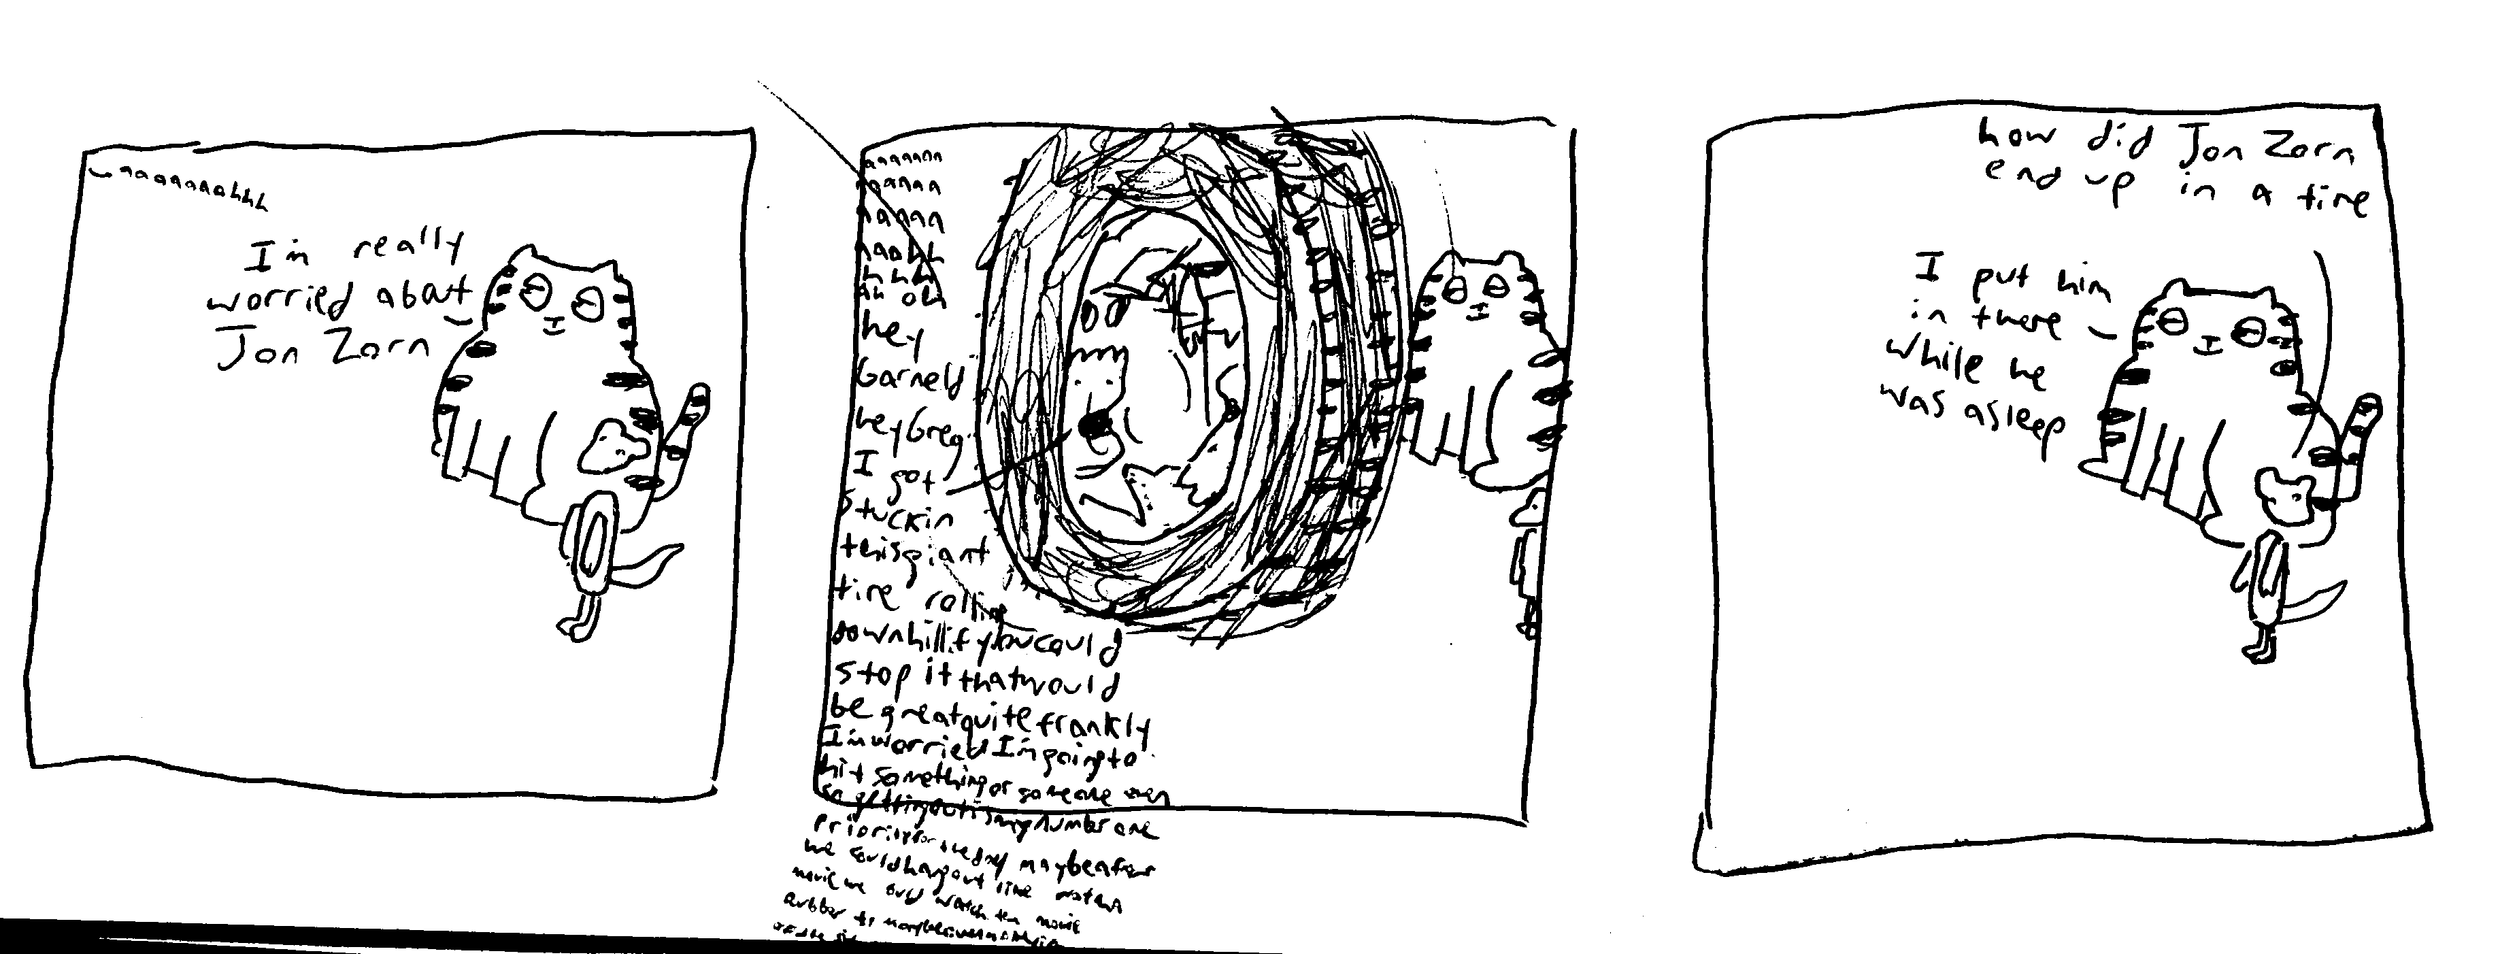 aaaaaaahhh
I'm really
worried about
Jon Zorn
aaaaaaa
aaaaa
aaaaa
aaahh
hhhh
hey
Garneld
hey Greg
I got
stuck in
this giant
tire rolling
downhill if you could
stop it that would
be great quite frankly
I'm worried I'm going to
hit something or someone
so getting out is my number one
we could hang out
watch the movie
how did Jon Zorn
end up in a tire
I put him
in there
while he
was asleep